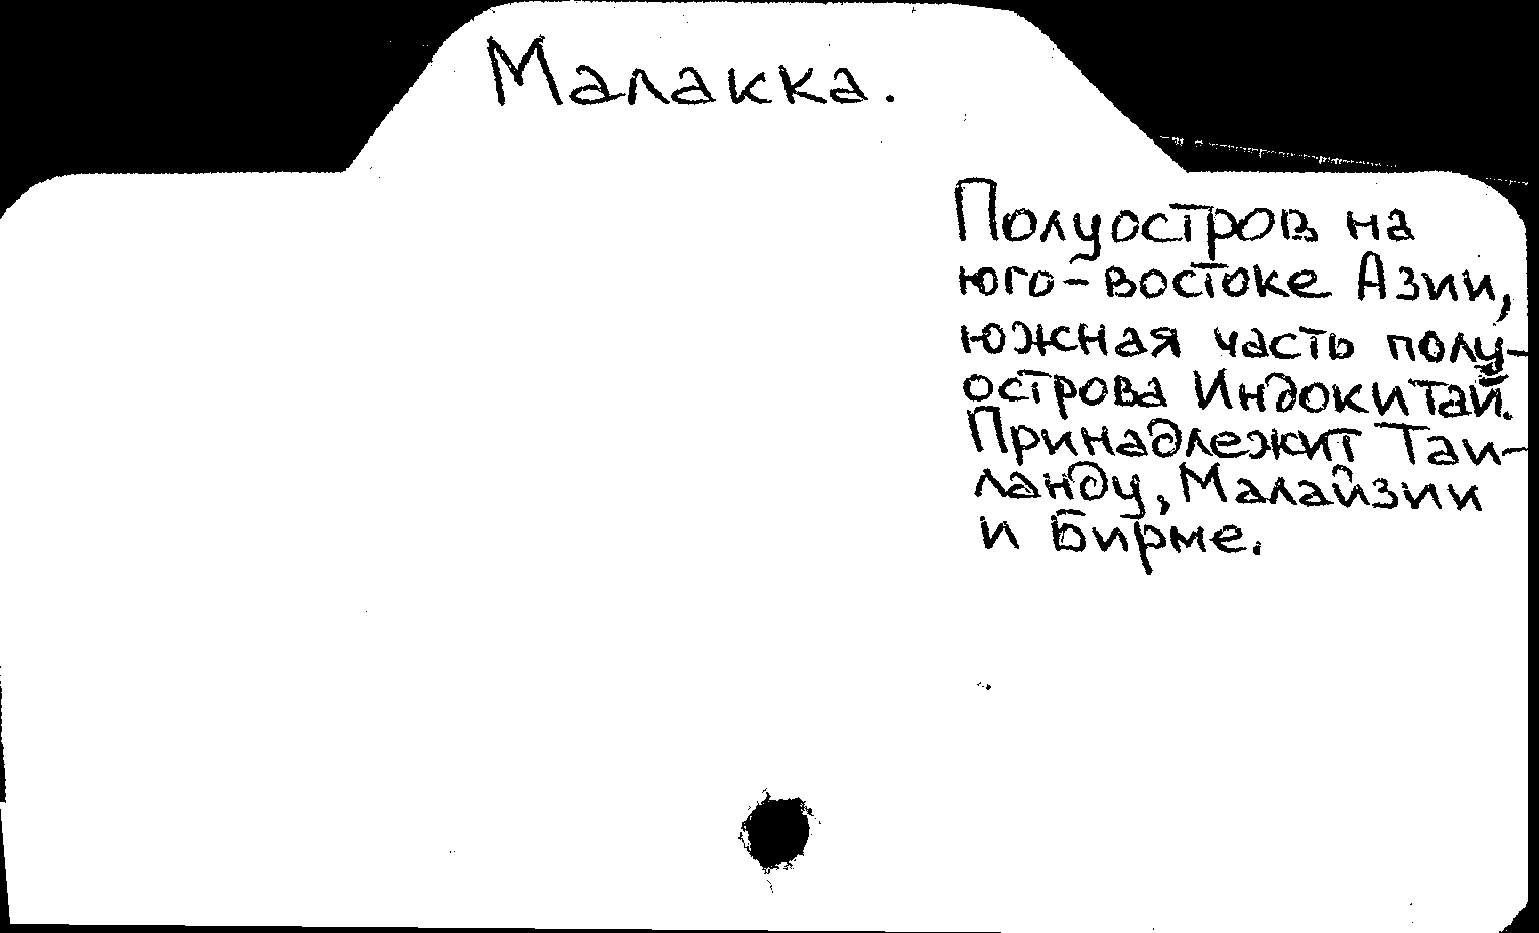 Малакка.
Полуостров на
юго-востоке Азии,
южная часть полу-
острова Индокитай.
Принадлежит Таи-
ланду, Малайзии
и Бирме.